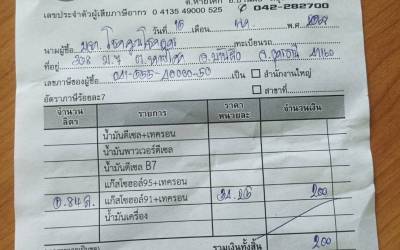 ต.หายโศก อ.บ้านผือ
เลขประจำตัวผู้เสียภาษีอากร 0 4135 49000 525 042-282700
วันที่ 15 เดือน พ.ศ.
นามผู้ซื้อ ทะเบียนรถ
ที่อยู่ 308 ม.7 ต.หายโศก อ.บ้านผือ จ.อุดรธานี 41160
เลขภาษีของผู้ซื้อ เป็น สำนักงานใหญ่
อัตราภาษีร้อยละ7 สาขาที่
จำนวน ลิตร รายการ ราคา หน่วยละ จำนวนเงิน
น้ำมันดีเซล+เทครอน
น้ำมันพาวเวอร์ดีเซล
น้ำมันดีเซล B7
แก๊สโซฮอล์95+เทครอน
แก๊สโซฮอล์91+เทครอน 200
น้ำมันเครื่อง
รวมเงินทั้งสิ้น 200